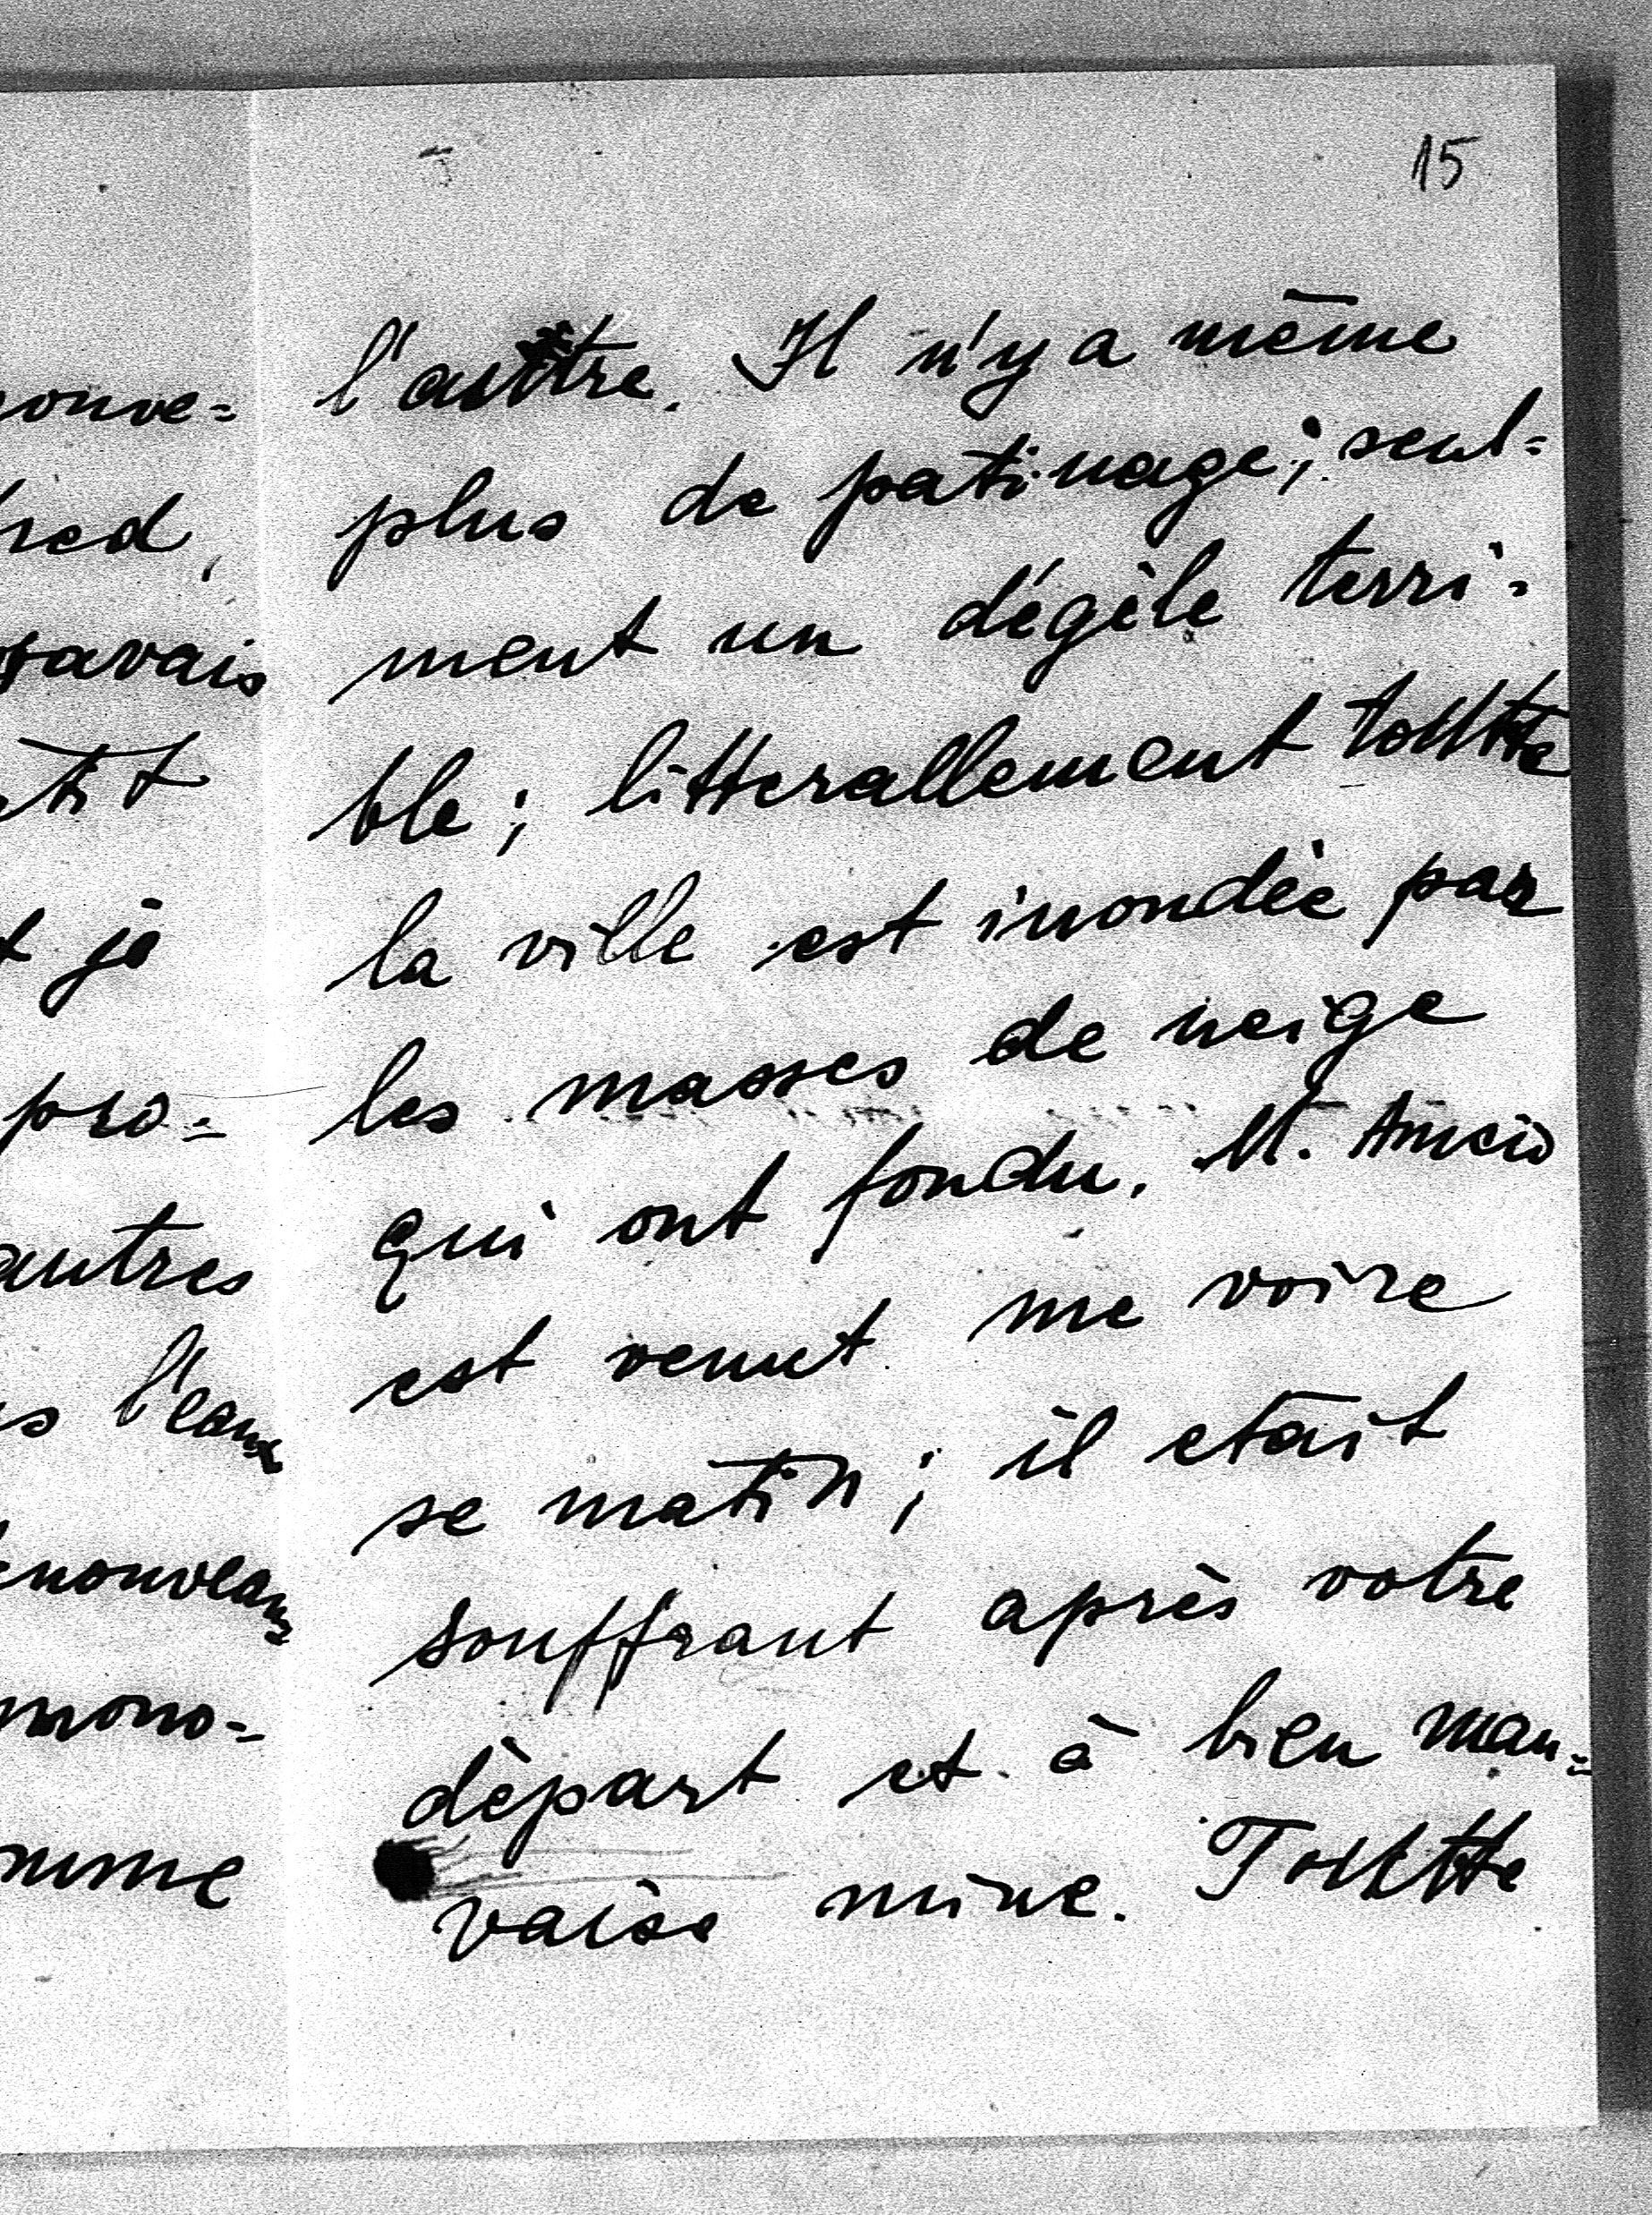 15
ouve=
red,
savais
tit
t je
pro=
autres
s l'eaux
nouveaux
mono=
mme
l'autre. Il n'y a même
plus de patinage; seul=
ment un dégèle terri=
ble; litterallement toutte
la ville est inondèe par
les masses de neige
qui ont fondu. M.
est venut me voire
se matin; il etait
souffrant après votre
dèpart et à bien mau=
vaise mine. Toutte